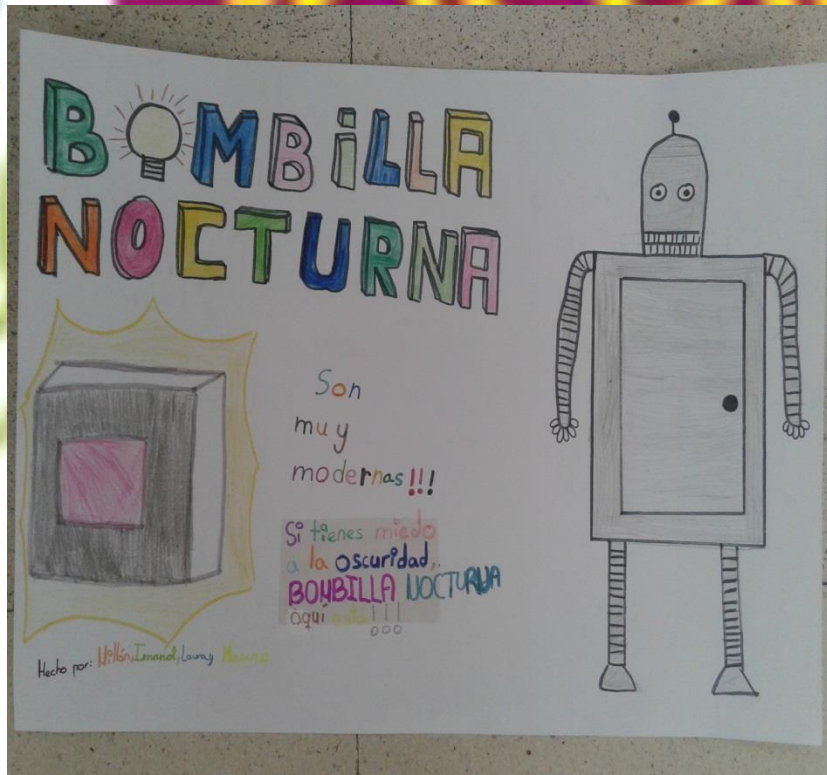 BOMBILLA
NOCTURNA
Son
muy
modernas!!!
Si tienes miedo
a la oscuridad,
BOMBILLA NOCTURNA
aquí está!!!
Hecho por: Millán, Imanol, Laura y